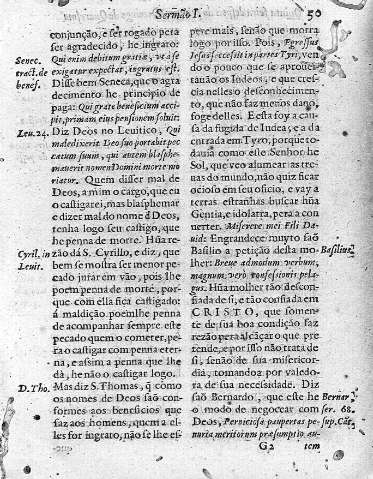 Sermão I.
50
conjunção, e ser rogado pera
ser agradecido, he ingrato:
Senec.
Qui enim debitum gratiæ, ut a se
tract. de
exigatur expectat, ingratus est.
benef.
Disse bem Seneca, que o agra
decimento he principio de
paga: Qui grate beneficium acci
pit, primam eius pensionem soluit:
Leu. 24.
Diz Deos no Leuitico, Qui
maledixerit Deo suo portabit pec
catum suum, qui autem blasphe-
mauerit nomen Domini morte mo
riatur. Quem disser mal de
Deos, a mim o cargo, que eu
o castigarei, mas blasphemar
e dizer mal do nome d Deos,
tenha logo seu castigo, que
he penna de morte. Hũa re
Cyril. in
zão dá S. Cyrillo, e diz, que
Leuit.
bem se mostra ser menor pe
cado jurar em vão, pois lhe
poem penna de morte, por-
que com ella fica castigado:
á maldição poemlhe penna
de acompanhar sempre este
pecado quem o cometer, pe-
ra o castigar com penna eter-
na, e assim a penna que lhe
dá, he não o castigar logo.
D. Tho.
Mas diz S. Thomas, q̃ como
os nomes de Deos saõ con-
formes aos beneficios que
faz aos homens, quem a el-
les for ingrato, não se lhe es-
pere mais, senão que morra
logo por isso. Pois, Egressus
Iesus, secessit in partes Tyri, ven
do o pouco que se aprouei-
tauão os Iudeos, e que cres-
cia nelles o desconhecimen-
to, que não faz menos dano,
foge delles. Esta foy a cau-
sa da fugida de Iudea, e a da
entrada em Tyro, porque to-
dauia como esse Senhor he
Sol, que veo alumear as tre-
uas do mundo, não quiz ficar
ocioso em seu oficio, e vay a
terras estranhas buscar hũa
Gentia, e idolatra, pera a con
uerter. Miserere mei Fili Da-
uid: Engrandece muyto saõ
Basilio a petição desta mo-
Basilius.
lher: Breve admodum verbum,
magnum vero confessionis pela-
gus. Hũa molher tão descon-
fiada de si, e tão confiada em
CRISTO, que somen-
te de sua boa condição faz
rezão pera alcãçar o que pre
tende, e por isso não trata de
si, senão de sua misericor-
dia, tomando a por valedo-
ra de sua necessidade. Diz
saõ Bernardo, que este he
Bernar.
o modo de negocear com
ser. 68.
Deos, Perniciosa paupertas pe-
sup. Cãt.
nuria meritorum præsumptio au-
G 2
tem